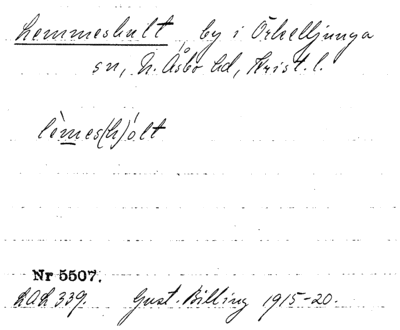 Lemmeshult, by i Örkelljunga
sn, N. Åsbo hd, Krist. l.
lèmes(h)ólt
Nr 5507.
LAL 339. Gust. Billing 1915-20.